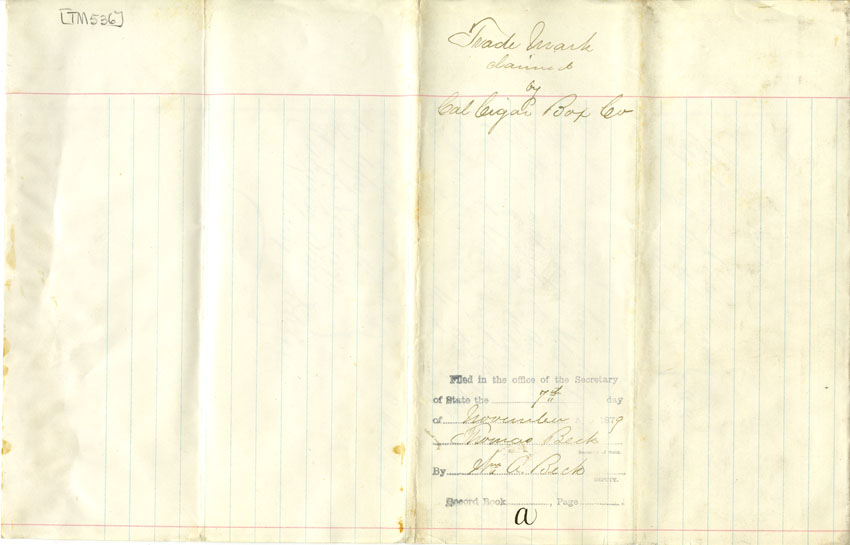 [TM536]
Trade Mark
claimed
by
Cal Cigar Box Co
Filed in the office of the Secretary
of State the 7th day
of November 1879
Thomas Beck
Secretary of State
By Wm A. Beck
DEPUTY.
Record Book , Page
a